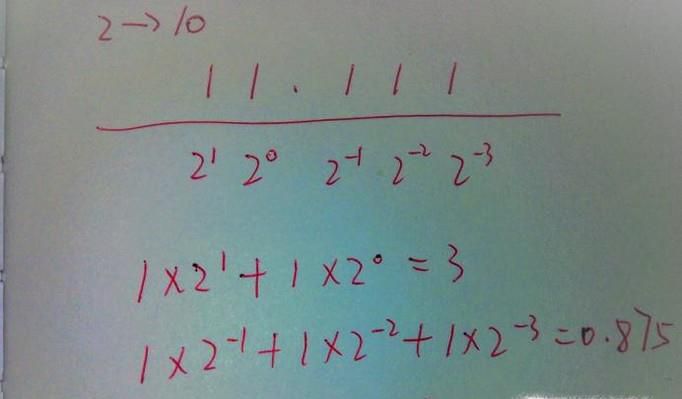 2→10
11.111
2¹ 2⁰ 2⁻¹ 2⁻² 2⁻³
1×2¹+1×2⁰=3
1×2⁻¹+1×2⁻²+1×2⁻³=0.875